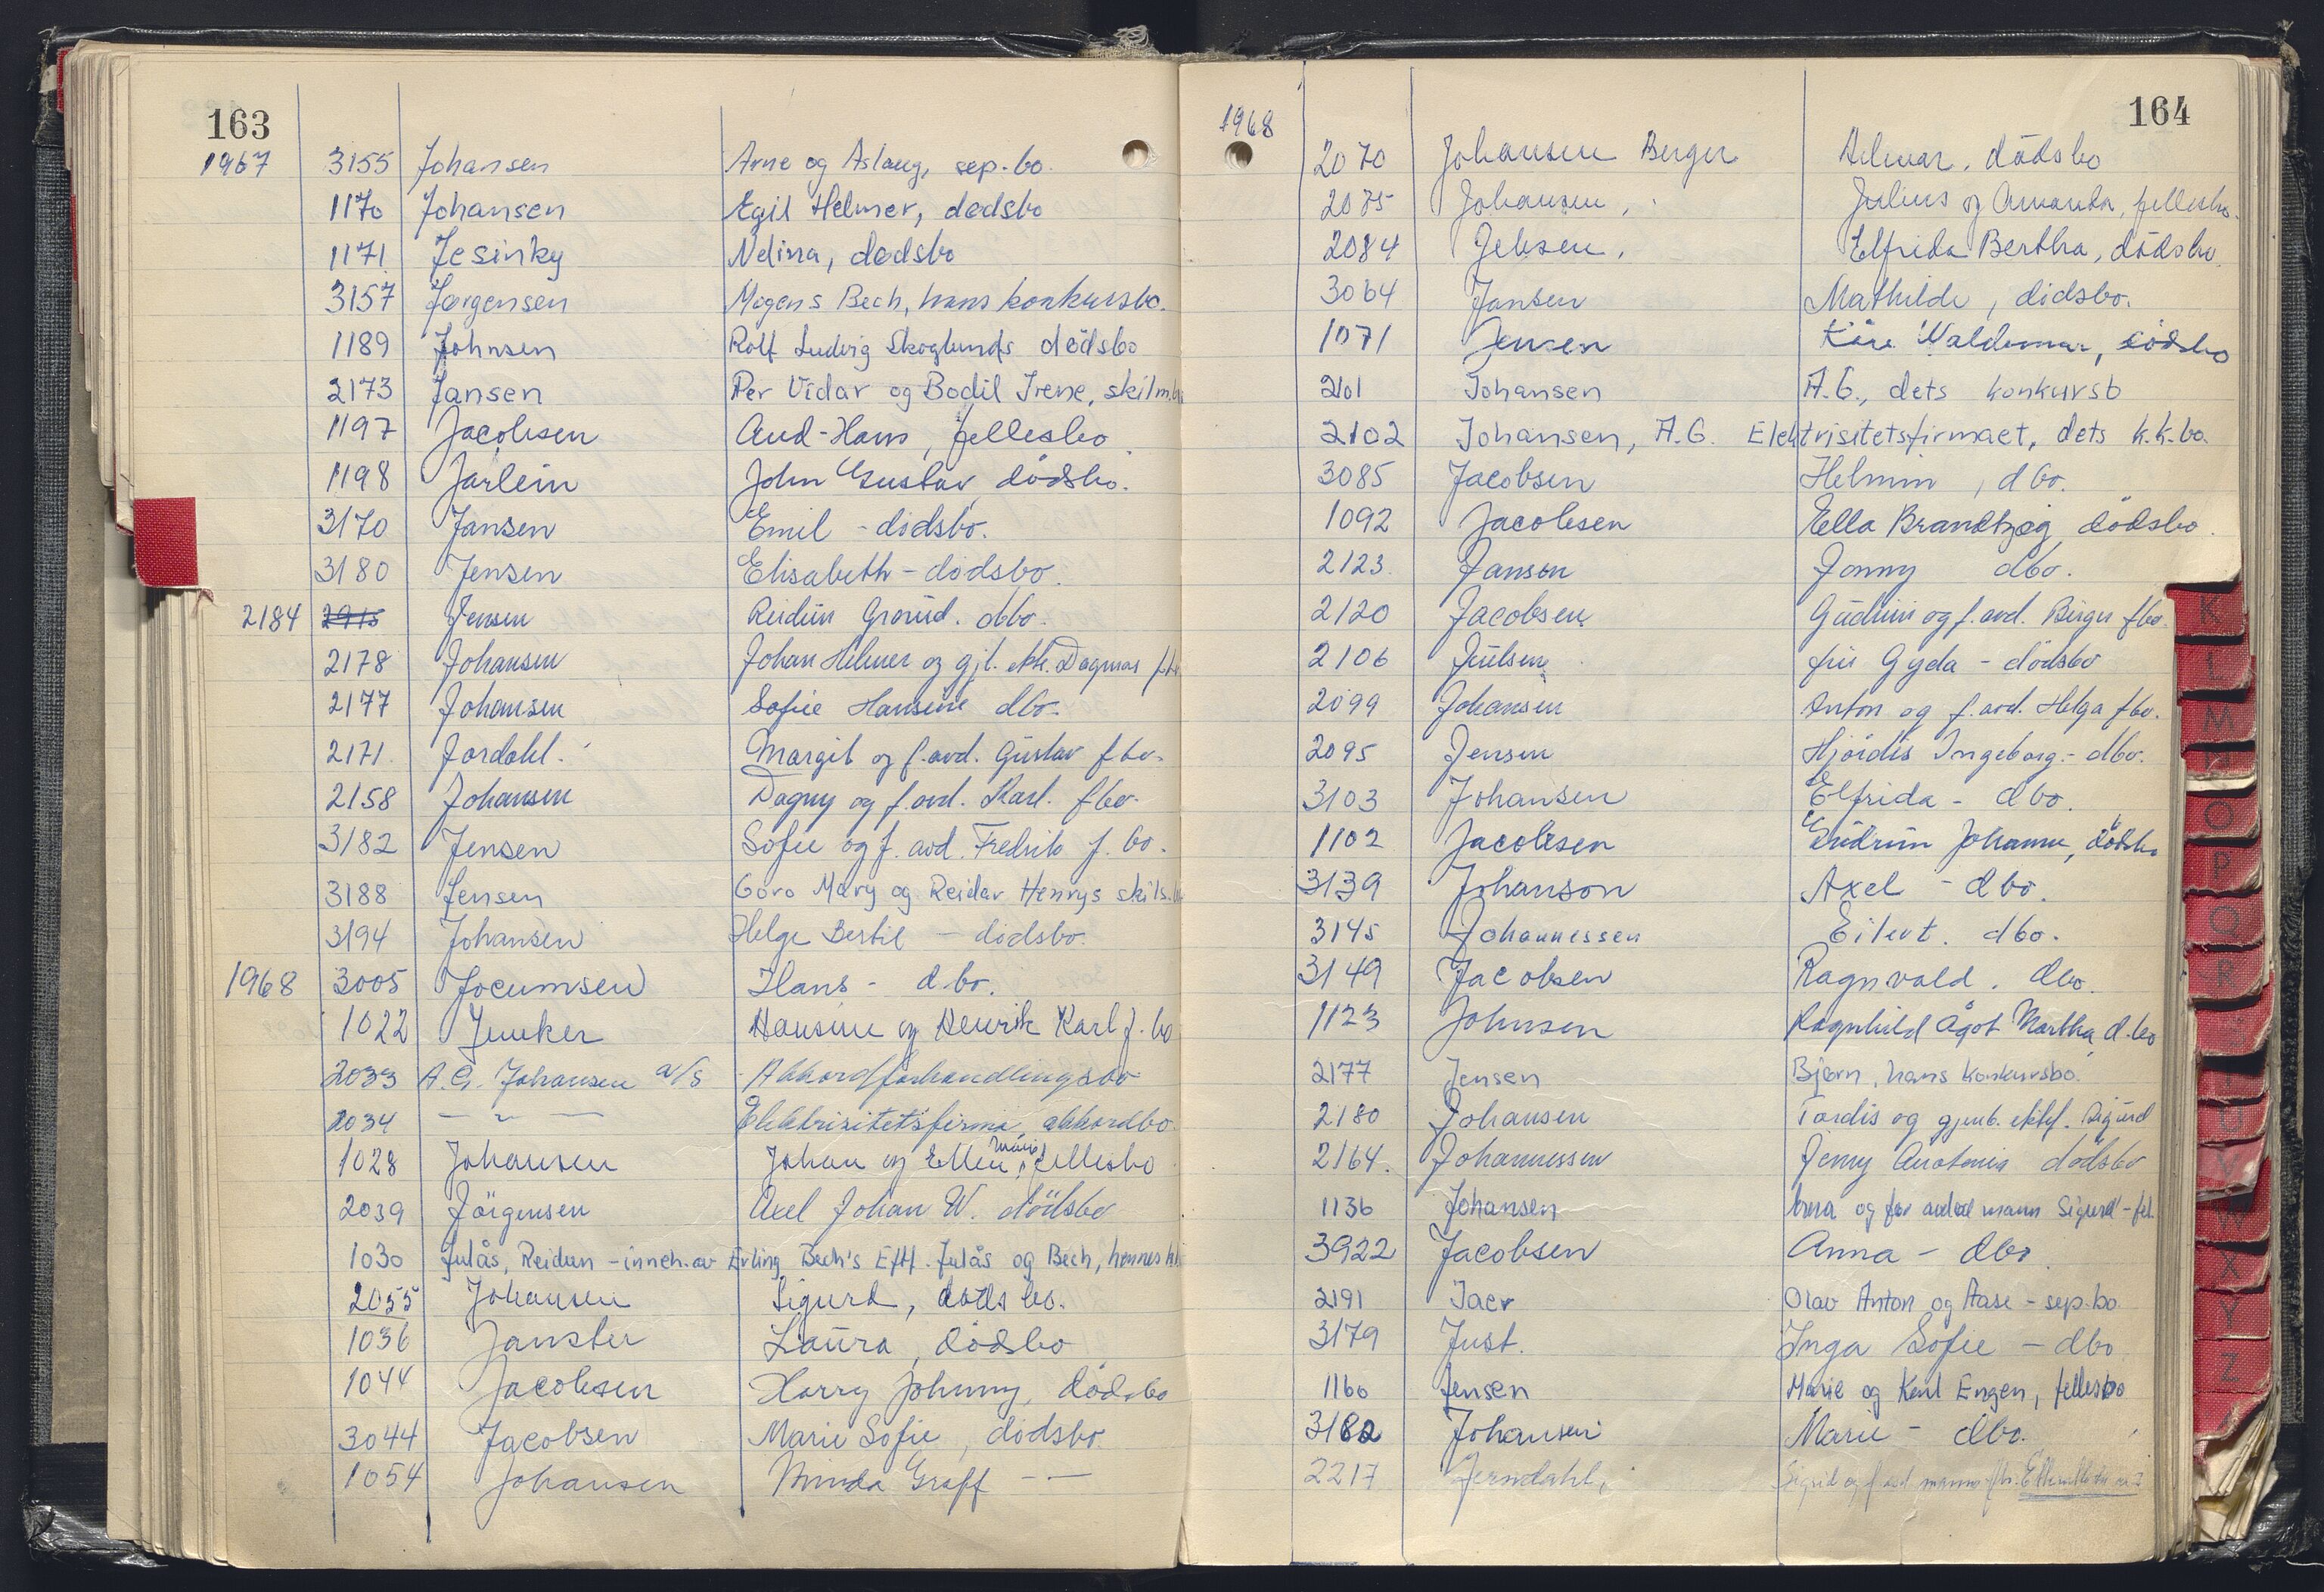 163
1967 3155 Johansen Arne og Aslaug, sep.bo.
1170 Johansen Egil Helmer, dødsbo
1171 Jesinky Nelina, dødsbo
3157 Jørgensen Mogens Bech, hans konkursbo.
1189 Johnsen Rolf Ludvig Skoglunds dødsbo
2173 Jansen Per Vidar og Bodil Irene, skilm.
1197 Jacobsen Aud-Hans, fellesbo
1198 Jarlein John Gustav dödsbo.
3170 Jansen Emil - dödsbo.
3180 Jensen Elisabeth - dødsbo.
2184 Jensen Reidun dbo.
2178 Johansen Johan Helmer og gjl. ekt. Dagmar
2177 Johansen Sofie Hansine dbo.
2171 Jordahl. Margit og f.avd. Gustav fbo.
2158 Johansen Dagny og f.avd. Karl. fbo.
3182 Jensen Sofie og f. avd. Fredrik f. bo.
3188 Jensen Goro Mary og Reidar Henrys skils.
3194 Johansen Helge Bertil - dödsbo.
1968 3005 Jocumsen Hans - d.bo.
1022 Junker Hansine og Henrik Karl f. bo
2033 A.G. Johansen a/s - Akkordforhandlingsbo
2034 — " — Elektrisitetsfirma akkordbo.
1028 Johansen Johan og Ellen fellesbo
2039 Jörgensen Axel Johan W. dödsbo
1030 Julås, Reidun - inneh. av Erling Bech's Eftf. Julås og Bech, hennes
2055 Johansen Sigurd, døds bo.
1036 Laura, dödsbo
1044 Jacobsen Harry Johnny, dödsbo
3044 Jacobsen Marie Sofie, dödsbo
1054 Johansen Minda Graff - —
164
1968
2070 Johansen Berger Helmar, dödsbo
2075 Johansen, Julius og Amanda, fellesbo.
2084 Jebsen, Elfrida Bertha, dödsbo
3064 Jansen Mathilde, dödsbo.
1071 Jensen Kåre Waldemar, dödsbo
2101 Johansen A.G., dets konkursb
2102 Johansen, A.G. Elektrisitetsfirmaet, dets k.k.bo.
3085 Jacobsen Helmin, dbo.
1092 Jacobsen Ella Brandtzæg, dödsbo.
2123. Janson Jonny dbo.
2120 Jacobsen Gudrun og f.avd. Birger fbo.
2106 Juulsen fru Gyda - dödsbo
2099 Johansen Anton og f.avd. Helga fbo.
2095 Jensen Hjördis Ingeborg - dbo.
3103 Johansen Elfrida - dbo.
1102 Jacobsen Gudrun Johanne, dödsbo
3139 Johanson Axel - dbo.
3145 Johannessen Eilert. dbo.
3149 Jacobsen Ragnvald. dbo.
1123 Johnsen Ragnhild Ågot Martha, d.bo
2177 Jensen Bjørn, hans konkursbo.
2180 Johansen Tordis og gjenl. ektef. Sigurd
2164. Johannessen Jenny Antonia dödsbo
1136 Johansen og før avdød mann Sigurd - fel.
3922 Jacobsen Anna - dbo
2191 Jaer Olav Anton og Aase - sep.bo
3179 Just. Inga Sofie - dbo.
1160 Jensen Marie og Karl Engen, fellesbo
3182 Johansen Marie - dbo.
2217 Jerndahl, Sigrid og f.avd mann
K
L
M
N
O
P
Q
R
U
V
W
X
Y
Z